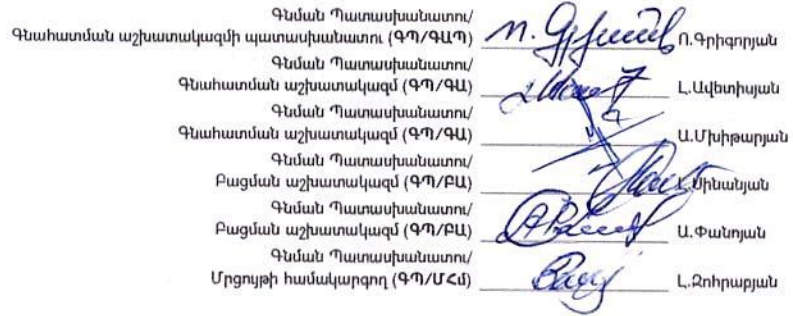 Գնման Պատասխանատու/
Գնահատման աշխատակազմի պատասխանատու (ԳՊ/ԳԱՊ) Ո.Գրիգորյան
Գնման Պատասխանատու/
Գնահատման աշխատակազմ (ԳՊ/ԳԱ) Լ.Ավետիսյան
Գնման Պատասխանատու/
Գնահատման աշխատակազմ (ԳՊ/ԳԱ) Ա.Մխիթարյան
Գնման Պատասխանատու/
Բացման աշխատակազմ (ԳՊ/ԲԱ) Սինանյան
Գնման Պատասխանատու/
Բացման աշխատակազմ (ԳՊ/ԲԱ) Ա.Փանոյան
Գնման Պատասխանատու/
Մրցույթի համակարգող (ԳՊ/ՄՀմ) Լ.Զոհրաբյան